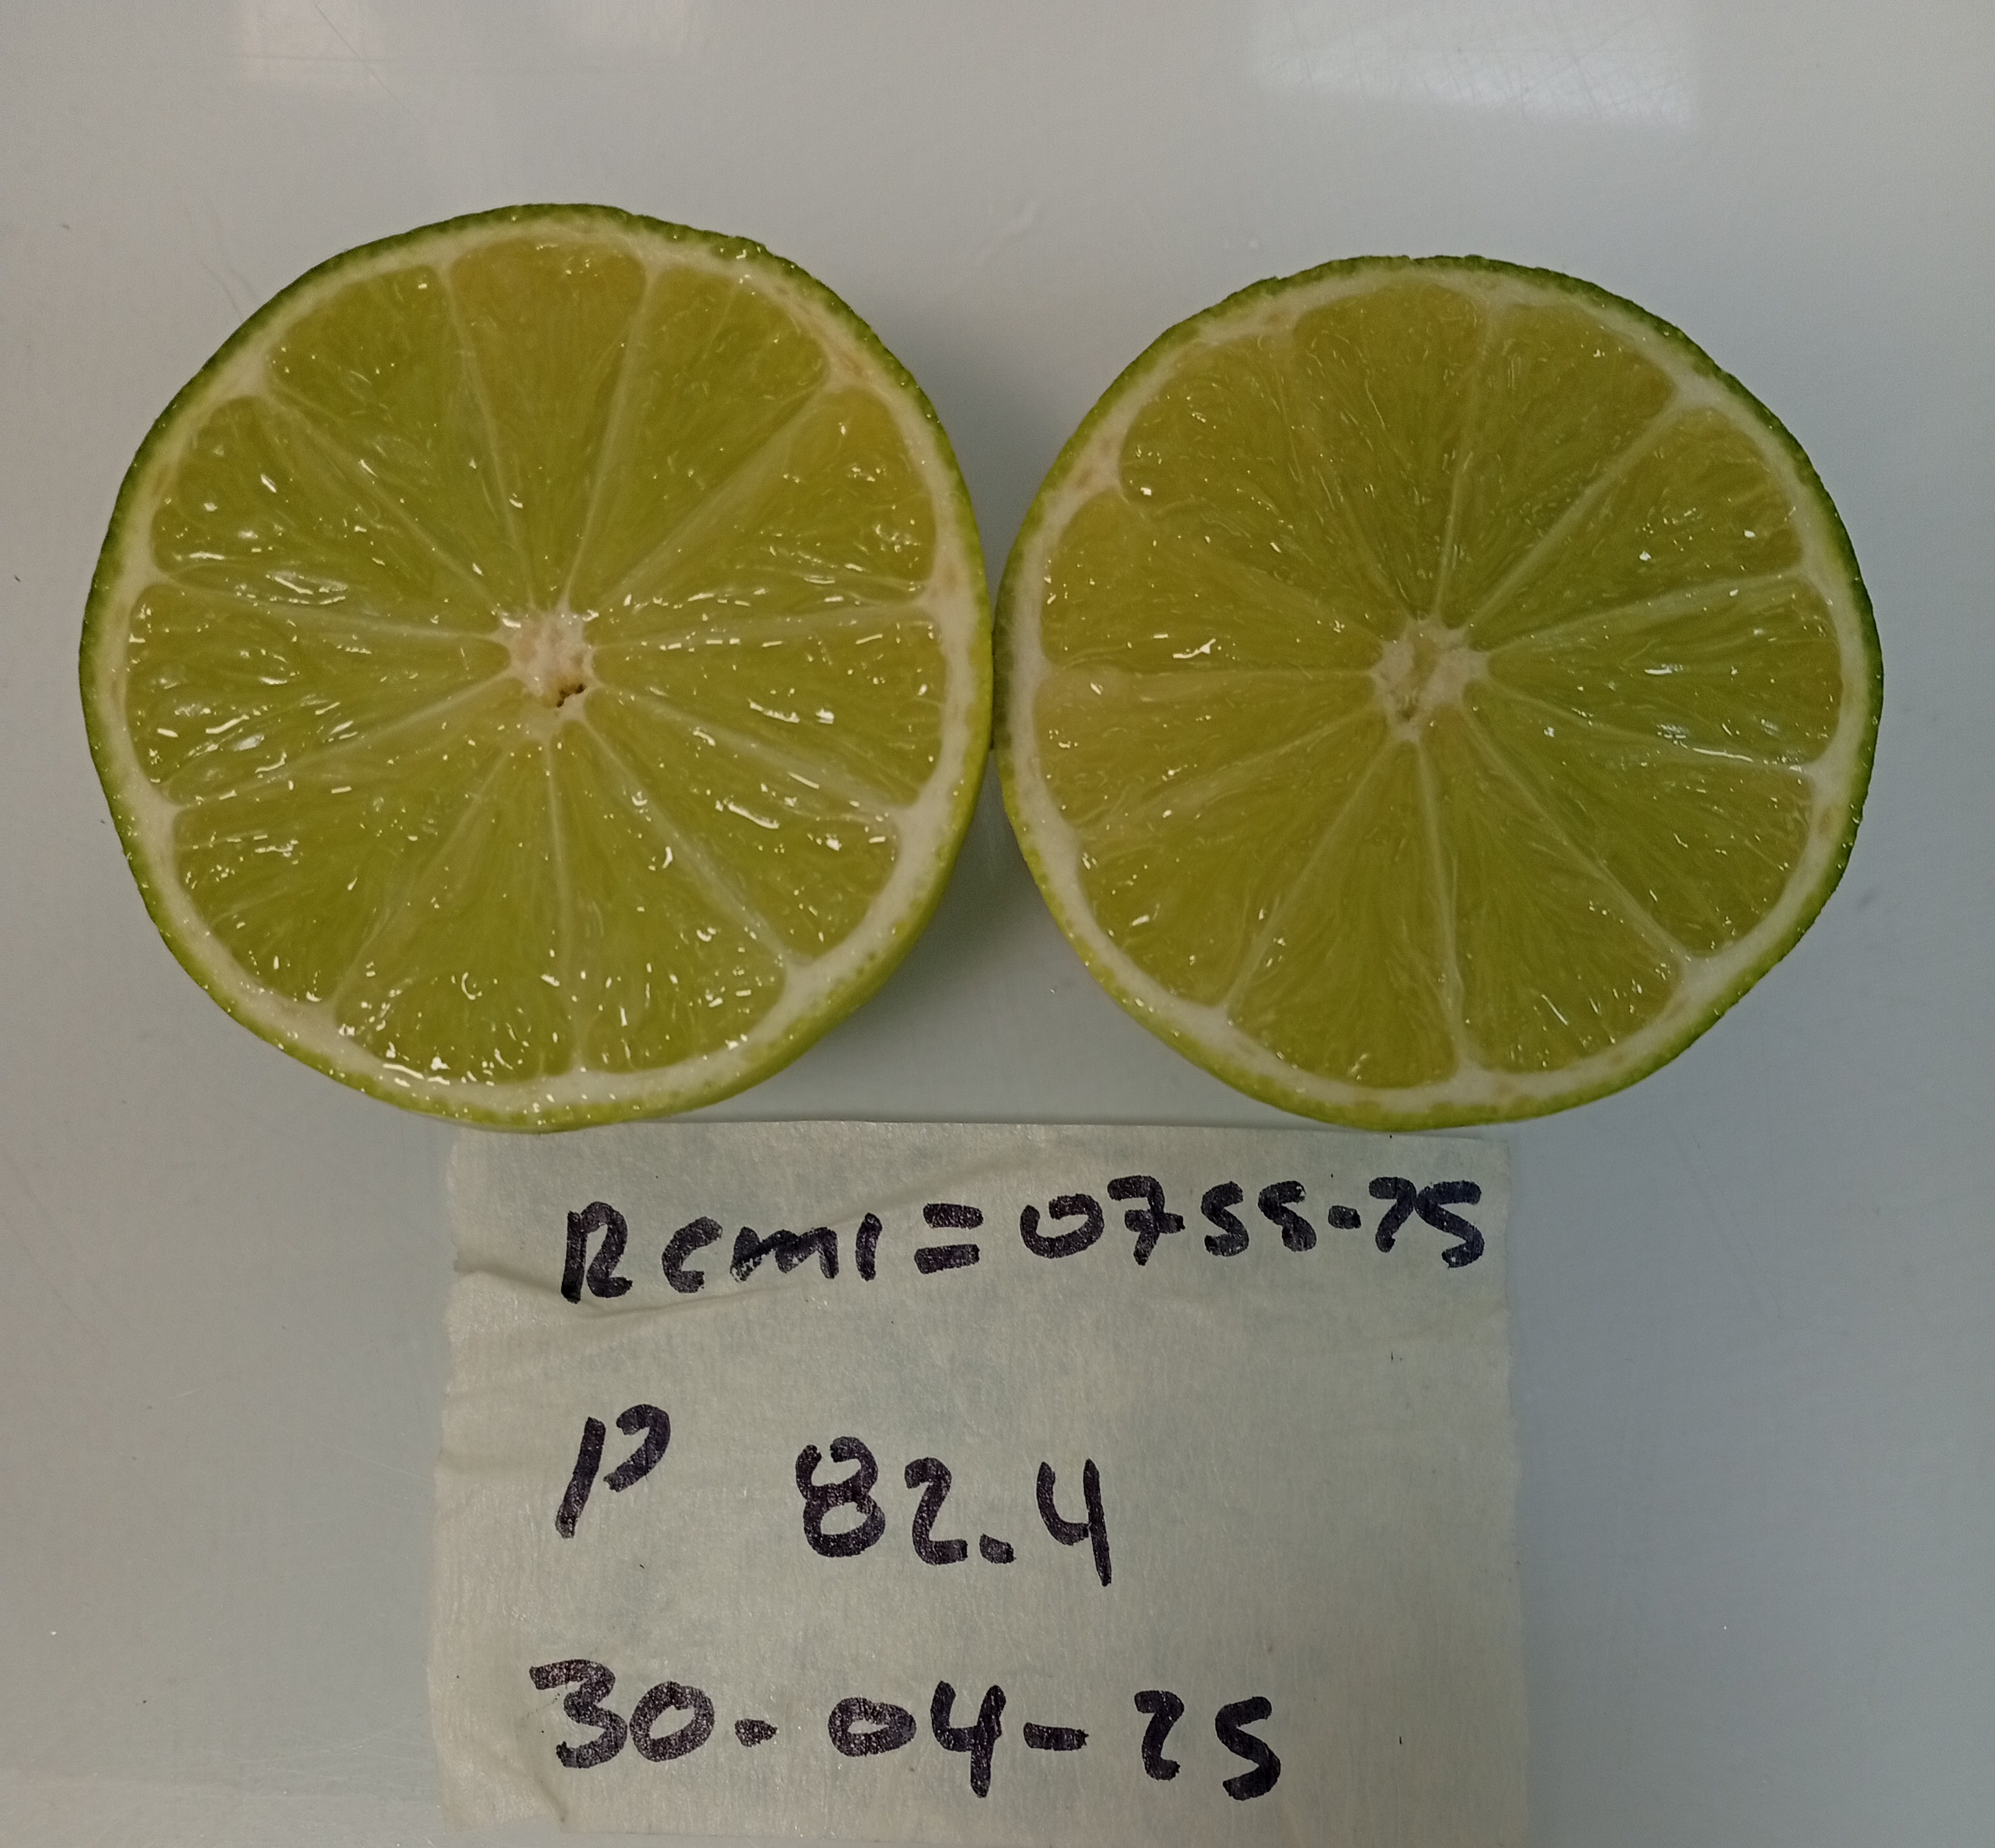 Remi=0755-25
P 82.4
30-04-25